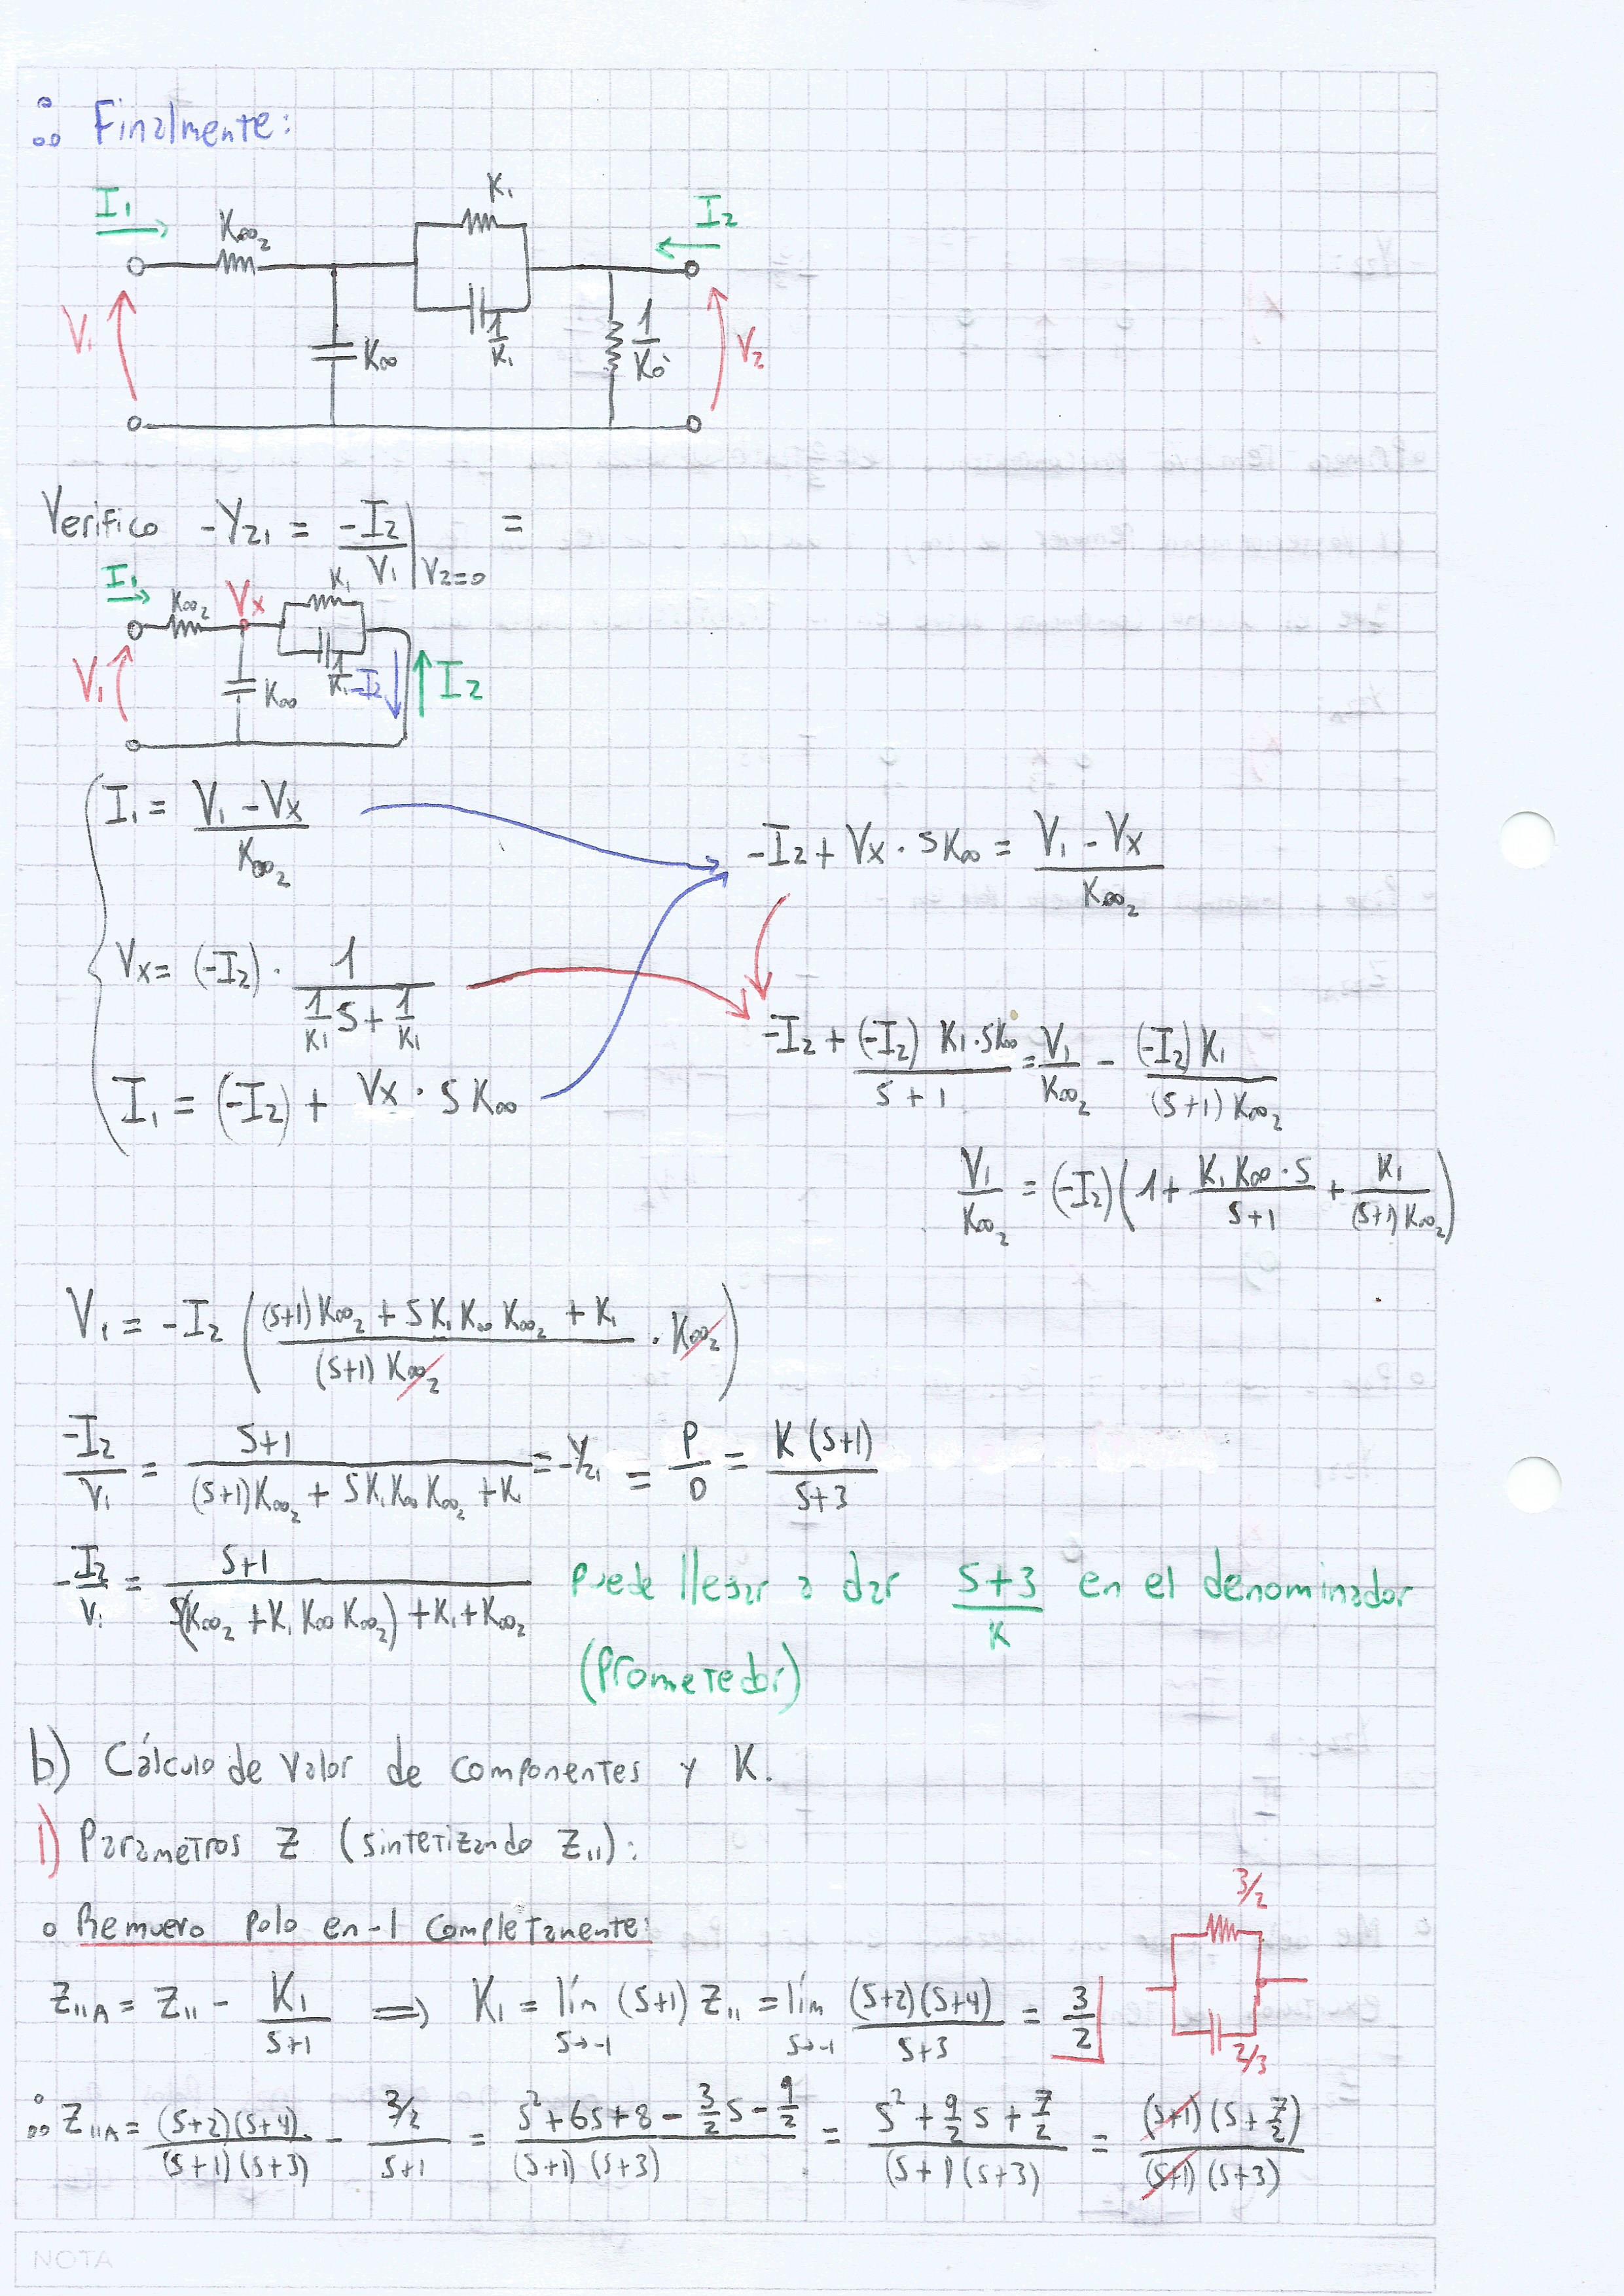 ∴ Finalmente:
I₁ K∞₂ K₁ I₂
V₁ K∞ 1/K₁ 1/K₀ V₂
Verifico -Y₂₁ = -I₂/V₁ |V₂=0 =
I₁ K∞₂ Vx K₁
V₁ K∞ 1/K₁ -I₂ I₂
I₁ = (V₁ - Vx)/K∞₂
-I₂ + Vx · SK∞ = (V₁ - Vx)/K∞₂
Vx = (-I₂) · 1/(1/K₁ S + 1/K₁)
-I₂ + (-I₂) K₁·SK∞/(S+1) = V₁/K∞₂ - (-I₂)K₁/((S+1)K∞₂)
I₁ = (-I₂) + Vx · SK∞
V₁/K∞₂ = (-I₂)(1 + K₁K∞·S/(S+1) + K₁/((S+1)K∞₂))
V₁ = -I₂ (((S+1)K∞₂ + SK₁K∞K∞₂ + K₁)/((S+1)K∞₂) · K∞₂)
-I₂/V₁ = (S+1)/((S+1)K∞₂ + SK₁K∞K∞₂ + K₁) = -Y₂₁ = P/D = K(S+1)/(S+3)
-I₂/V₁ = (S+1)/(S(K∞₂ + K₁K∞K∞₂) + K₁ + K∞₂) Puede llegar a dar (S+3)/K en el denominador
(Prometedor)
b) Cálculo de valor de componentes y K.
1) Parametros Z (sintetizando Z₁₁):
o Remuevo polo en -1 completamente:
3/2
Z₁₁A = Z₁₁ - K₁/(S+1) ⟹ K₁ = lím S→-1 (S+1) Z₁₁ = lím S→-1 (S+2)(S+4)/(S+3) = 3/2
2/3
∴ Z₁₁A = (S+2)(S+4)/((S+1)(S+3)) - (3/2)/(S+1) = (S²+6S+8 - 3/2 S - 9/2)/((S+1)(S+3)) = (S² + 9/2 S + 7/2)/((S+1)(S+3)) = (S+1)(S+7/2)/((S+1)(S+3))
NOTA